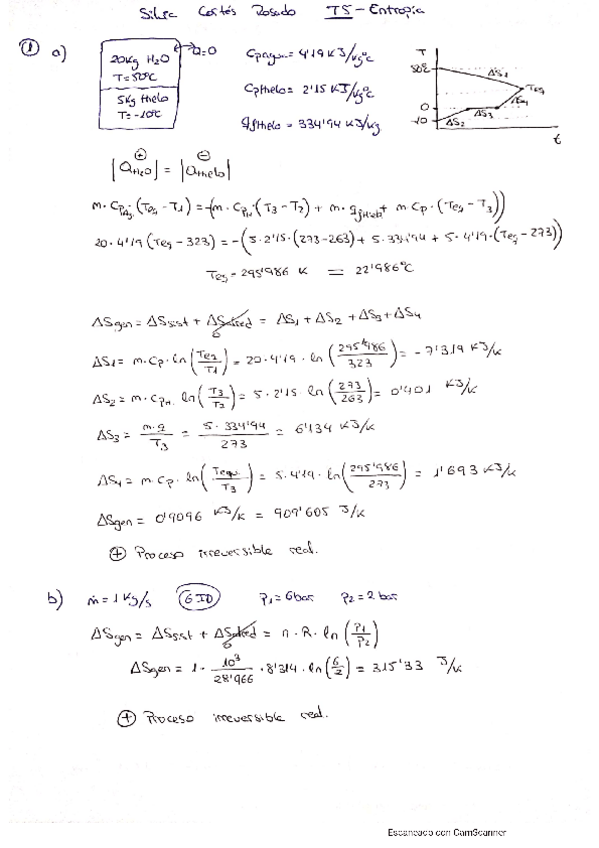 Silvia Cortés Rosado T5-Entropía
① a)
20 kg H2O
T=50ºC
5 kg Hielo
T=-10ºC
Q=0
Cpagua = 4'19 KJ/kgºC
Cphielo = 2'15 KJ/kgºC
qfhielo = 334'94 KJ/kg
T
50ºC
0
-10
ΔS1
ΔS2
ΔS3
ΔS4
Teq
t
⊕ ⊖
|QH2O| = |Qhielo|
m·Cpag·(Teq - T1) = -(m·CpH·(T3 - T2) + m·qfHielo + m·Cp·(Teq - T3))
20·4'19 (Teq - 323) = -(5·2'15·(273-263) + 5·334'94 + 5·4'19·(Teq - 273))
Teq = 295'986 K = 22'986ºC
ΔSgen = ΔSsist + ΔSalred = ΔS1 + ΔS2 + ΔS3 + ΔS4
0
ΔS1 = m·Cp·ln(Teq/T1) = 20·4'19·ln(295'986/323) = -7'319 KJ/K
ΔS2 = m·CpH·ln(T3/T2) = 5·2'15·ln(273/263) = 0'401 KJ/K
ΔS3 = m·q/T3 = 5·334'94/273 = 6'134 KJ/K
ΔS4 = m·Cp·ln(Tequ/T3) = 5·4'19·ln(295'986/273) = 1'693 KJ/K
ΔSgen = 0'9096 KJ/K = 909'605 J/K
⊕ Proceso irreversible real.
b) ṁ = 1 Kg/s GID P1 = 6bar P2 = 2 bar
ΔSgen = ΔSsist + ΔSalred = n·R·ln(P1/P2)
0
ΔSgen = 1·10³/28'966·8'314·ln(6/2) = 315'33 J/K
⊕ Proceso irreversible real.
Escaneado con CamScanner